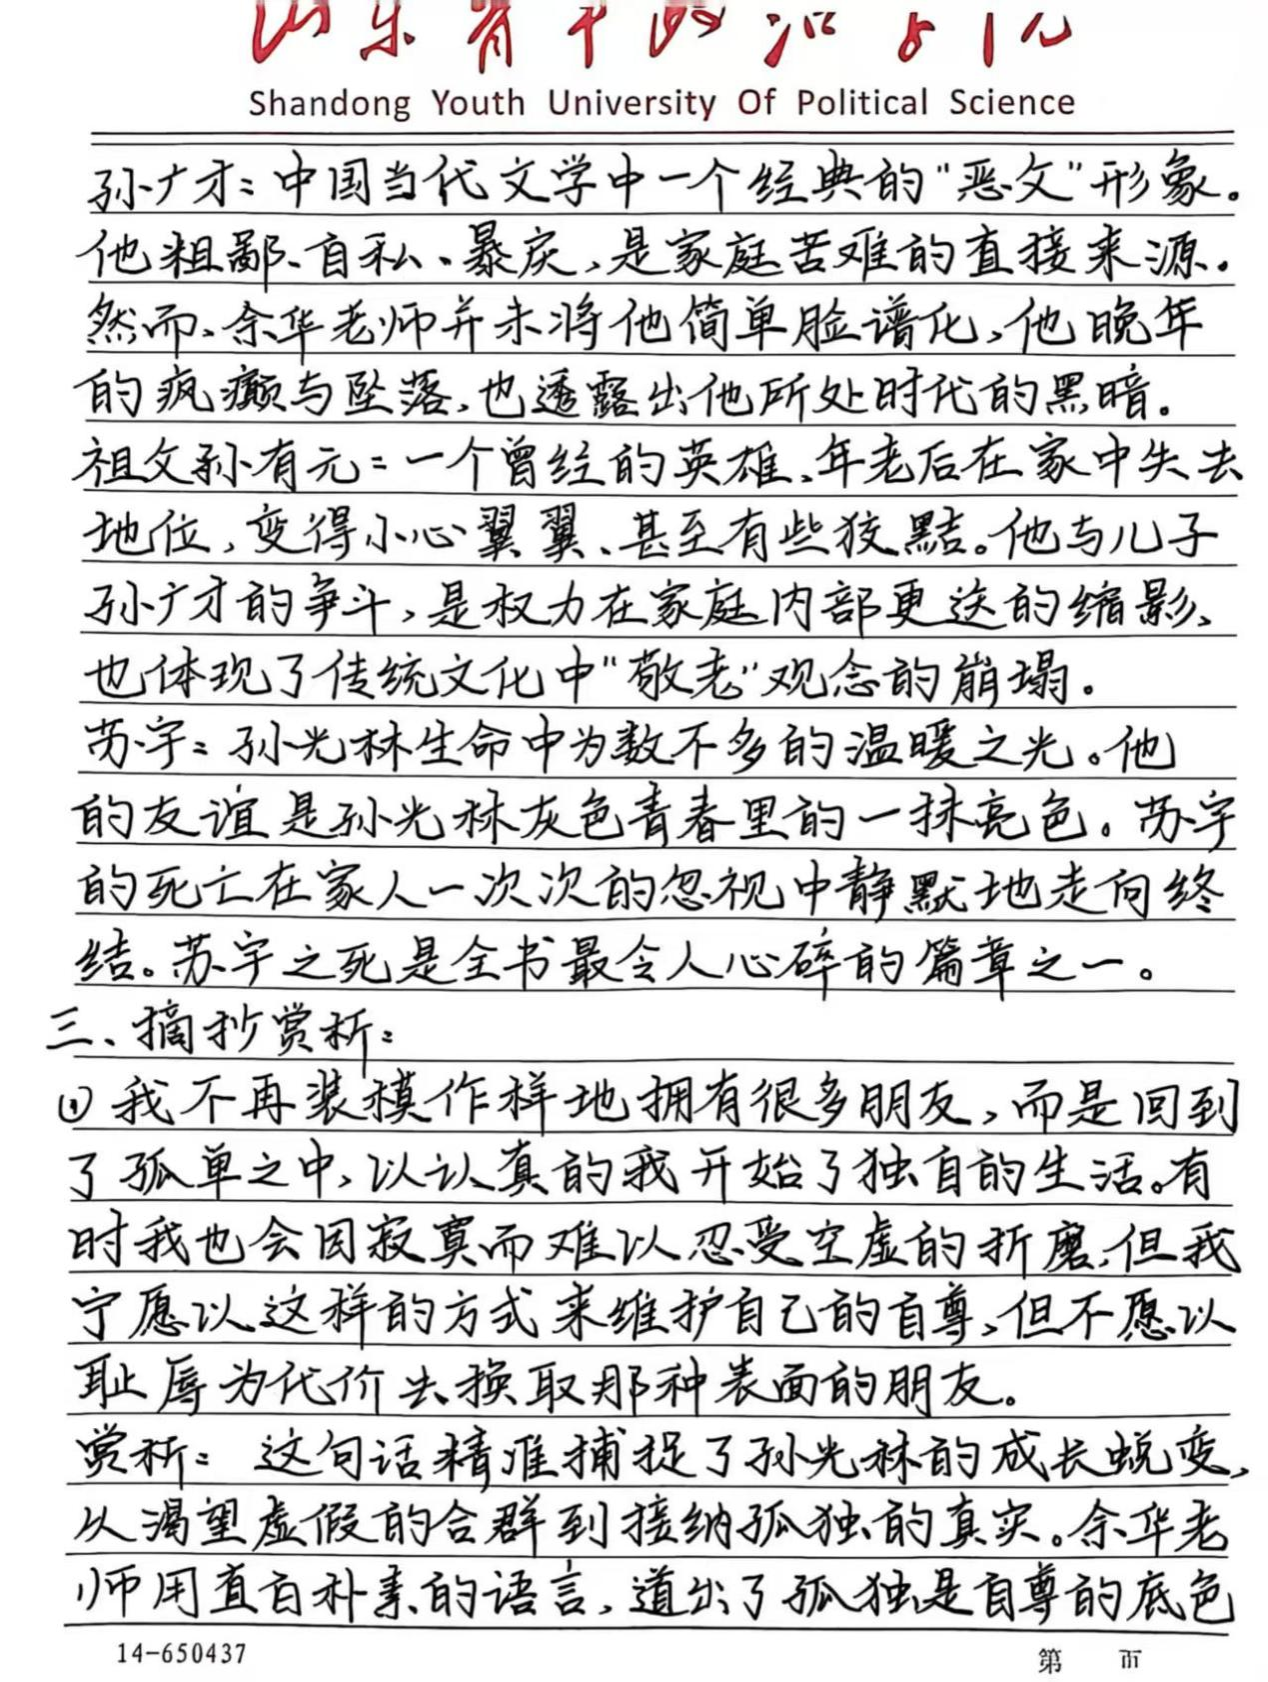 山东青年政治学院
Shandong Youth University Of Political Science
孙广才：中国当代文学中一个经典的“恶父”形象。
他粗鄙、自私、暴戾，是家庭苦难的直接来源。
然而，余华老师并未将他简单脸谱化，他晚年
的疯癫与坠落，也透露出他所处时代的黑暗。
祖父孙有元：一个曾经的英雄，年老后在家中失去
地位，变得小心翼翼、甚至有些狡黠。他与儿子
孙广才的争斗，是权力在家庭内部更迭的缩影，
也体现了传统文化中“敬老”观念的崩塌。
苏宇：孙光林生命中为数不多的温暖之光。他
的友谊是孙光林灰色青春里的一抹亮色。苏宇
的死亡在家人一次次的忽视中静默地走向终
结。苏宇之死是全书最令人心碎的篇章之一。
三、摘抄赏析：
① 我不再装模作样地拥有很多朋友，而是回到
了孤单之中，以认真的我开始了独自的生活。有
时我也会因寂寞而难以忍受空虚的折磨，但我
宁愿以这样的方式来维护自己的自尊，但不愿以
耻辱为代价去换取那种表面的朋友。
赏析：这句话精准捕捉了孙光林的成长蜕变，
从渴望虚假的合群到接纳孤独的真实。余华老
师用直白朴素的语言，道出了孤独是自尊的底色
14-650437
第 页